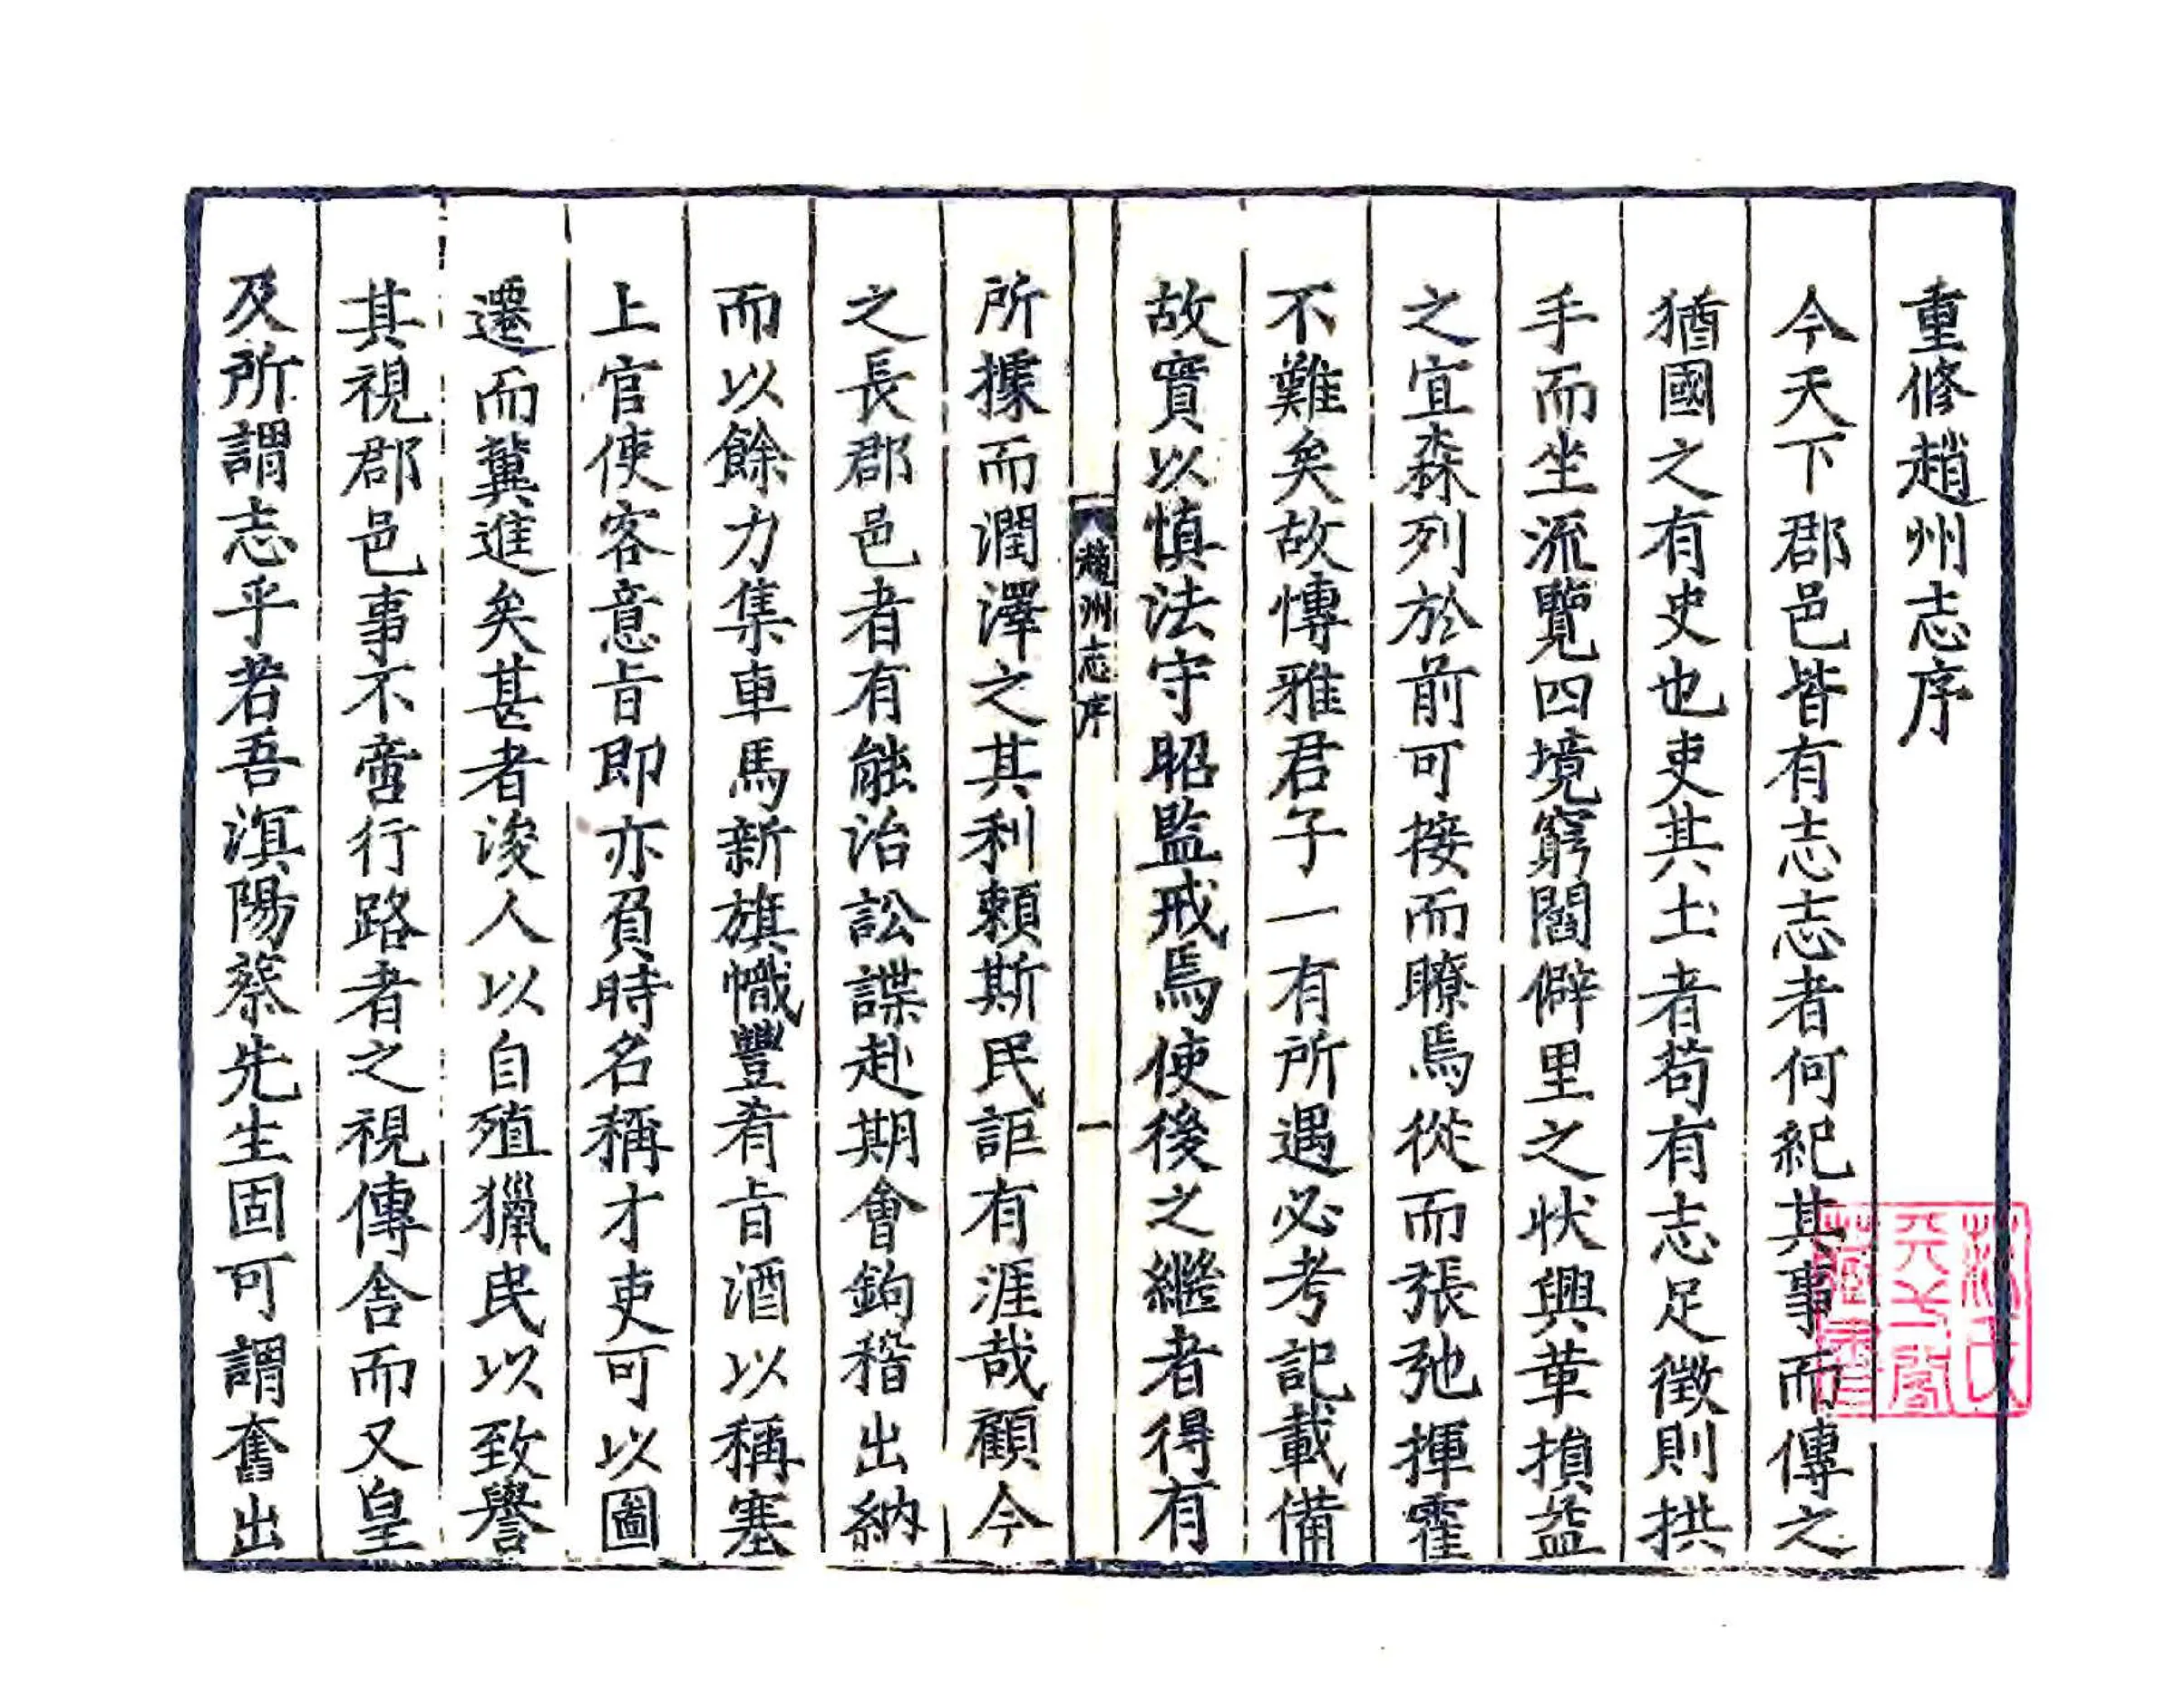 重修趙州志序
今天下郡邑皆有志志者何紀其事而傳之
猶國之有史也吏其土者苟有志足徵則拱
手而坐流覽四境窮閻僻里之狀興革損益
之宜森列於前可接而瞭焉從而張弛揮霍
不難矣故慱雅君子一有所遇必考記載備
故實以慎法守昭監戒焉使後之繼者得有
趙州志序 一
所據而潤澤之其利賴斯民詎有涯哉顧今
之長郡邑者有能治訟諜赴期會鉤稽出納
而以餘力集車馬新旗幟豐肴旨酒以稱塞
上官使客意旨即亦負時名稱才吏可以圖
遷而冀進矣甚者浚人以自殖獵民以致譽
其視郡邑事不啻行路者之視傳舍而又皇
及所謂志乎若吾滇陽蔡先生固可謂奮出